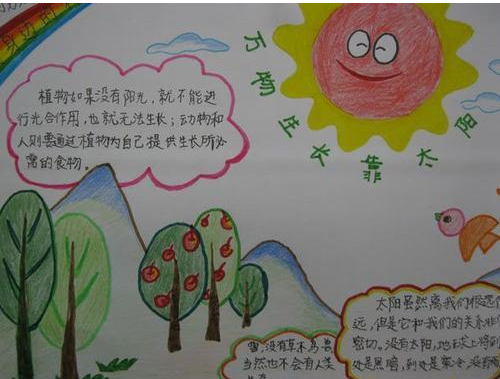 身边的
万物生长靠太阳
植物如果没有阳光，就不能进
行光合作用，也就无法生长；动物和
人则需通过植物为自己提供生长所必
需的食物。
雪，没有草木鸟兽
当然也不会有人类
太阳虽然离我们很远
远，但是它和我们的关系非
密切。没有太阳，地球上将到
处是黑暗，到处是寒冷，没有